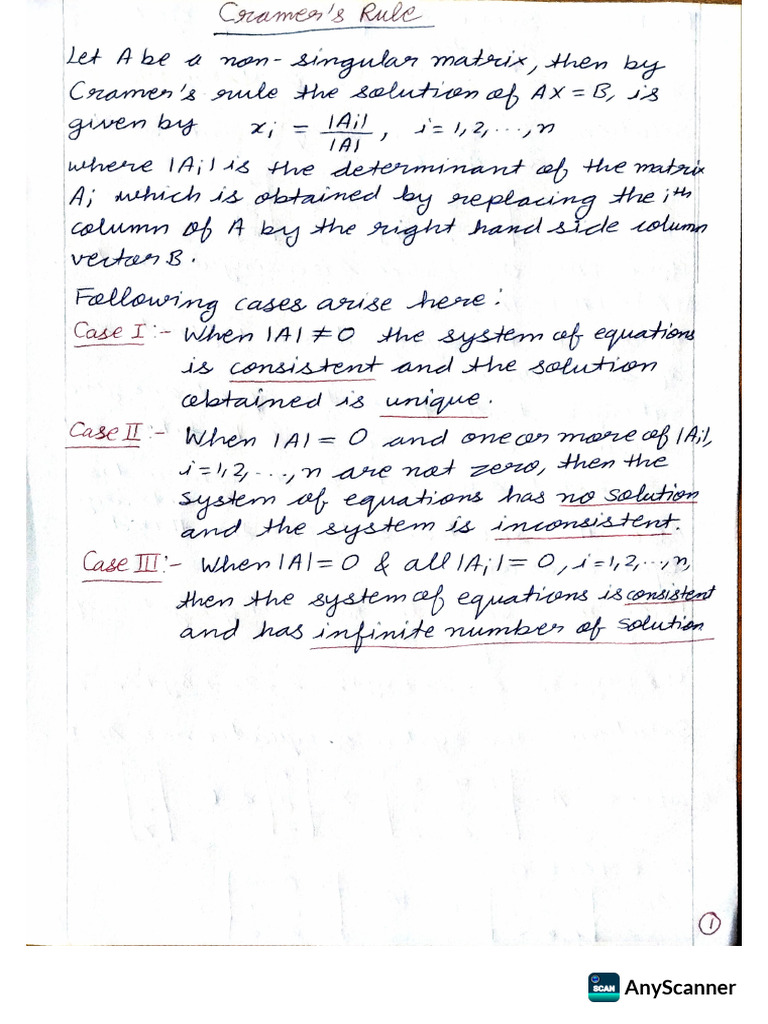 Cramer's Rule
Let A be a non-singular matrix, then by
Cramer's rule the solution of AX = B, is
given by xᵢ = |Aᵢ| / |A| , i = 1, 2, ..., n
where |Aᵢ| is the determinant of the matrix
Aᵢ which is obtained by replacing the iᵗʰ
column of A by the right hand side column
vector B.
Following cases arise here:
Case I :- When |A| ≠ 0 the system of equations
is consistent and the solution
obtained is unique.
Case II :- When |A| = 0 and one or more of |Aᵢ|,
i = 1, 2, ..., n are not zero, then the
system of equations has no solution
and the system is inconsistent.
Case III :- When |A| = 0 & all |Aᵢ| = 0, i = 1, 2, ..., n,
then the system of equations is consistent
and has infinite number of solution
1
SCAN AnyScanner